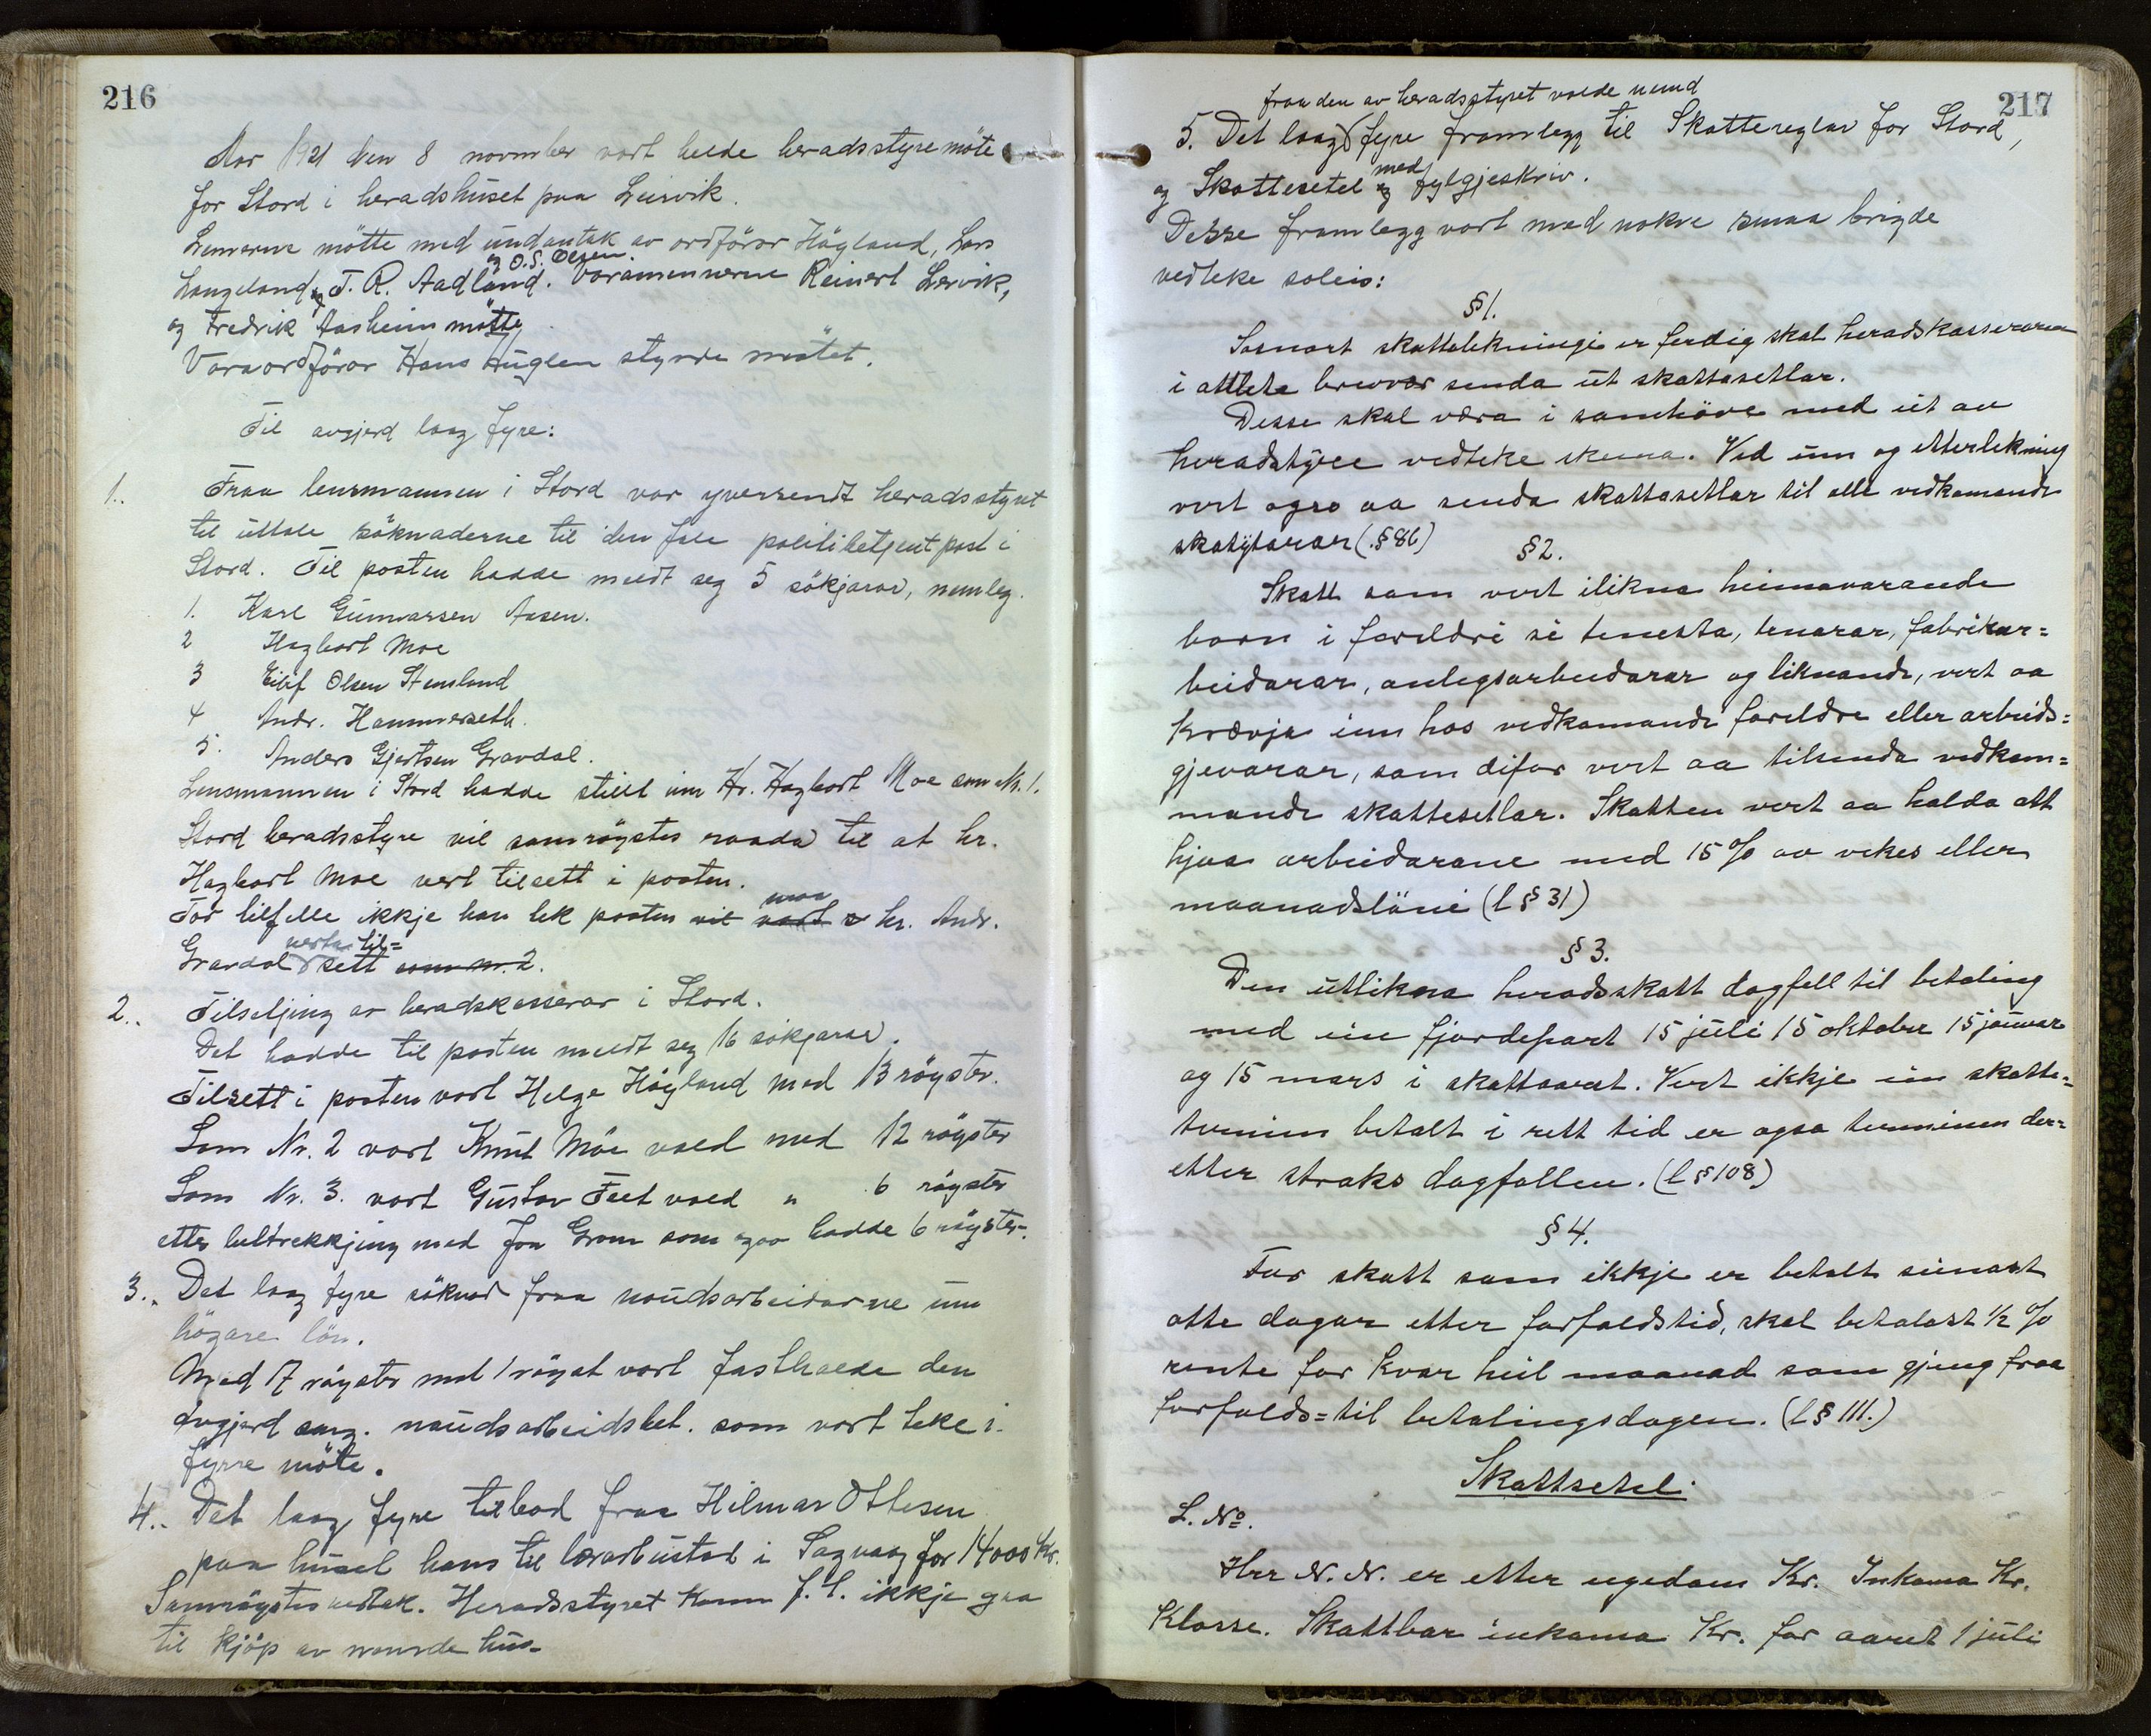 216
Aar 1921 den 8 november vart helde heradsstyremöte
for Stord i heradshuset paa Leirvik.
Lemerne mötte med undantak av ordförar Högland, Lars
Langeland, T. R. Aadland. og O.S. Olsen. Varamennerne Reinert Lervik,
og Fredrik Aasheim mötte
Varaordförar Hans Huglen styrde mötet.
Til avgjerd laag fyre:
1. Fraa lensmannen i Stord var yversendt heradsstyret
til uttale söknaderne til den fale politibetjent post i
Stord. Til posten hadde meldt seg 5 sökjarar, nemleg.
1. Karl Gunnarsen Aasen.
2 Hagbart Moe
3 Eilif Olsen Stensland
4 Andr. Hammerseth.
5. Anders Gjertsen Gravdal.
Lensmannen i Stord hadde stillt inn Hr. Hagbart Moe som Nr. 1.
Stord heradsstyre vil samröystes raada til at hr.
Hagbart Moe vert tilsett i posten.
For tilfelle ikkje han tek posten vil vart maa hr. Andr.
Gravdal verta til=sett som nr. 2.
2. Tilseljing av heradskasserar i Stord.
Det hadde til posten meldt seg 16 sökjarar.
Tilsett i posten vart Helge Högland med 13 röyster.
Som Nr. 2 vart Knut Möe vald med 12 röyster
Som Nr. 3. vart Gustav Feet vald " 6 röyster
etter lutdrekkjing med Jon Grov som ogso hadde 6 röyster.
3. Det laag fyre söknad fraa naudsarbeidarne um
högare lön.
Med 17 röyster mot 1 röyst vart fasthalde den
avgjerd ang. naudsarbeidslet. som vart teke i
fyrre möte.
4. Det laag fyre tilbod fraa Hilmar Ottesen
paa huset hans til lærarbustad i Sagvaag for 14000 kr.
Samröystes vedtak. Heradsstyret kann f. t. ikkje gaa
til kjöp av nemnde hus.
217
fraa den av heradsstyret valde nemd
5. Det laag fyre framlegg til Skattereglar for Stord,
og Skattesetel med fylgjeskriv.
Desse framlegg vart med nokre smaa brigde
vedteke soleis:
§1.
Sosnart skattelikningi er ferdig skal heradskasseraren
i attlete brevver senda ut skattesetlar.
Desse skal væra i samhöve med eit av
heradstyre vedteke skema. Ved um og etterlikning
vert ogso aa senda skattasetlar til alle vedkomande
skatytarar (.§86)
§2.
Skatt som vert ilikna heimaverande
born i foreldri si tenesta, tenarar, fabrikar=
beidarar, anlegsarbeidarar og liknande, vert aa
krævja inn hos vedkomande foreldre eller arbeids=
gjevarar, som difor vert aa tilsenda vedkom=
mande skattesetlar. Skatten vert aa halda att
hjaa arbeidarane med 15% av vekes eller
maanadsløni (l § 31)
§3.
Den utlikna heradsskatt dagfell til betaling
med ein fjordepart 15 juli 15 oktober 15 januar
og 15 mars i skattaaret. Vert ikkje ein skatte=
termin betalt i rett tid er ogsa terminen der=
etter straks dagfallen. (l § 108)
§4.
For skatt som ikkje er betalt seinast
otte dagar etter forfaldstid, skal betalast ½ %
rente for kvar heil maanad som gjeng fraa
forfalds= til betalingsdagen. (l § 111.)
Skattsetel.
L. No.
Herr N. N. er etter eigedom Kr. Inkoma Kr.
Klasse. Skattbar inkoma Kr. for aaret 1 juli